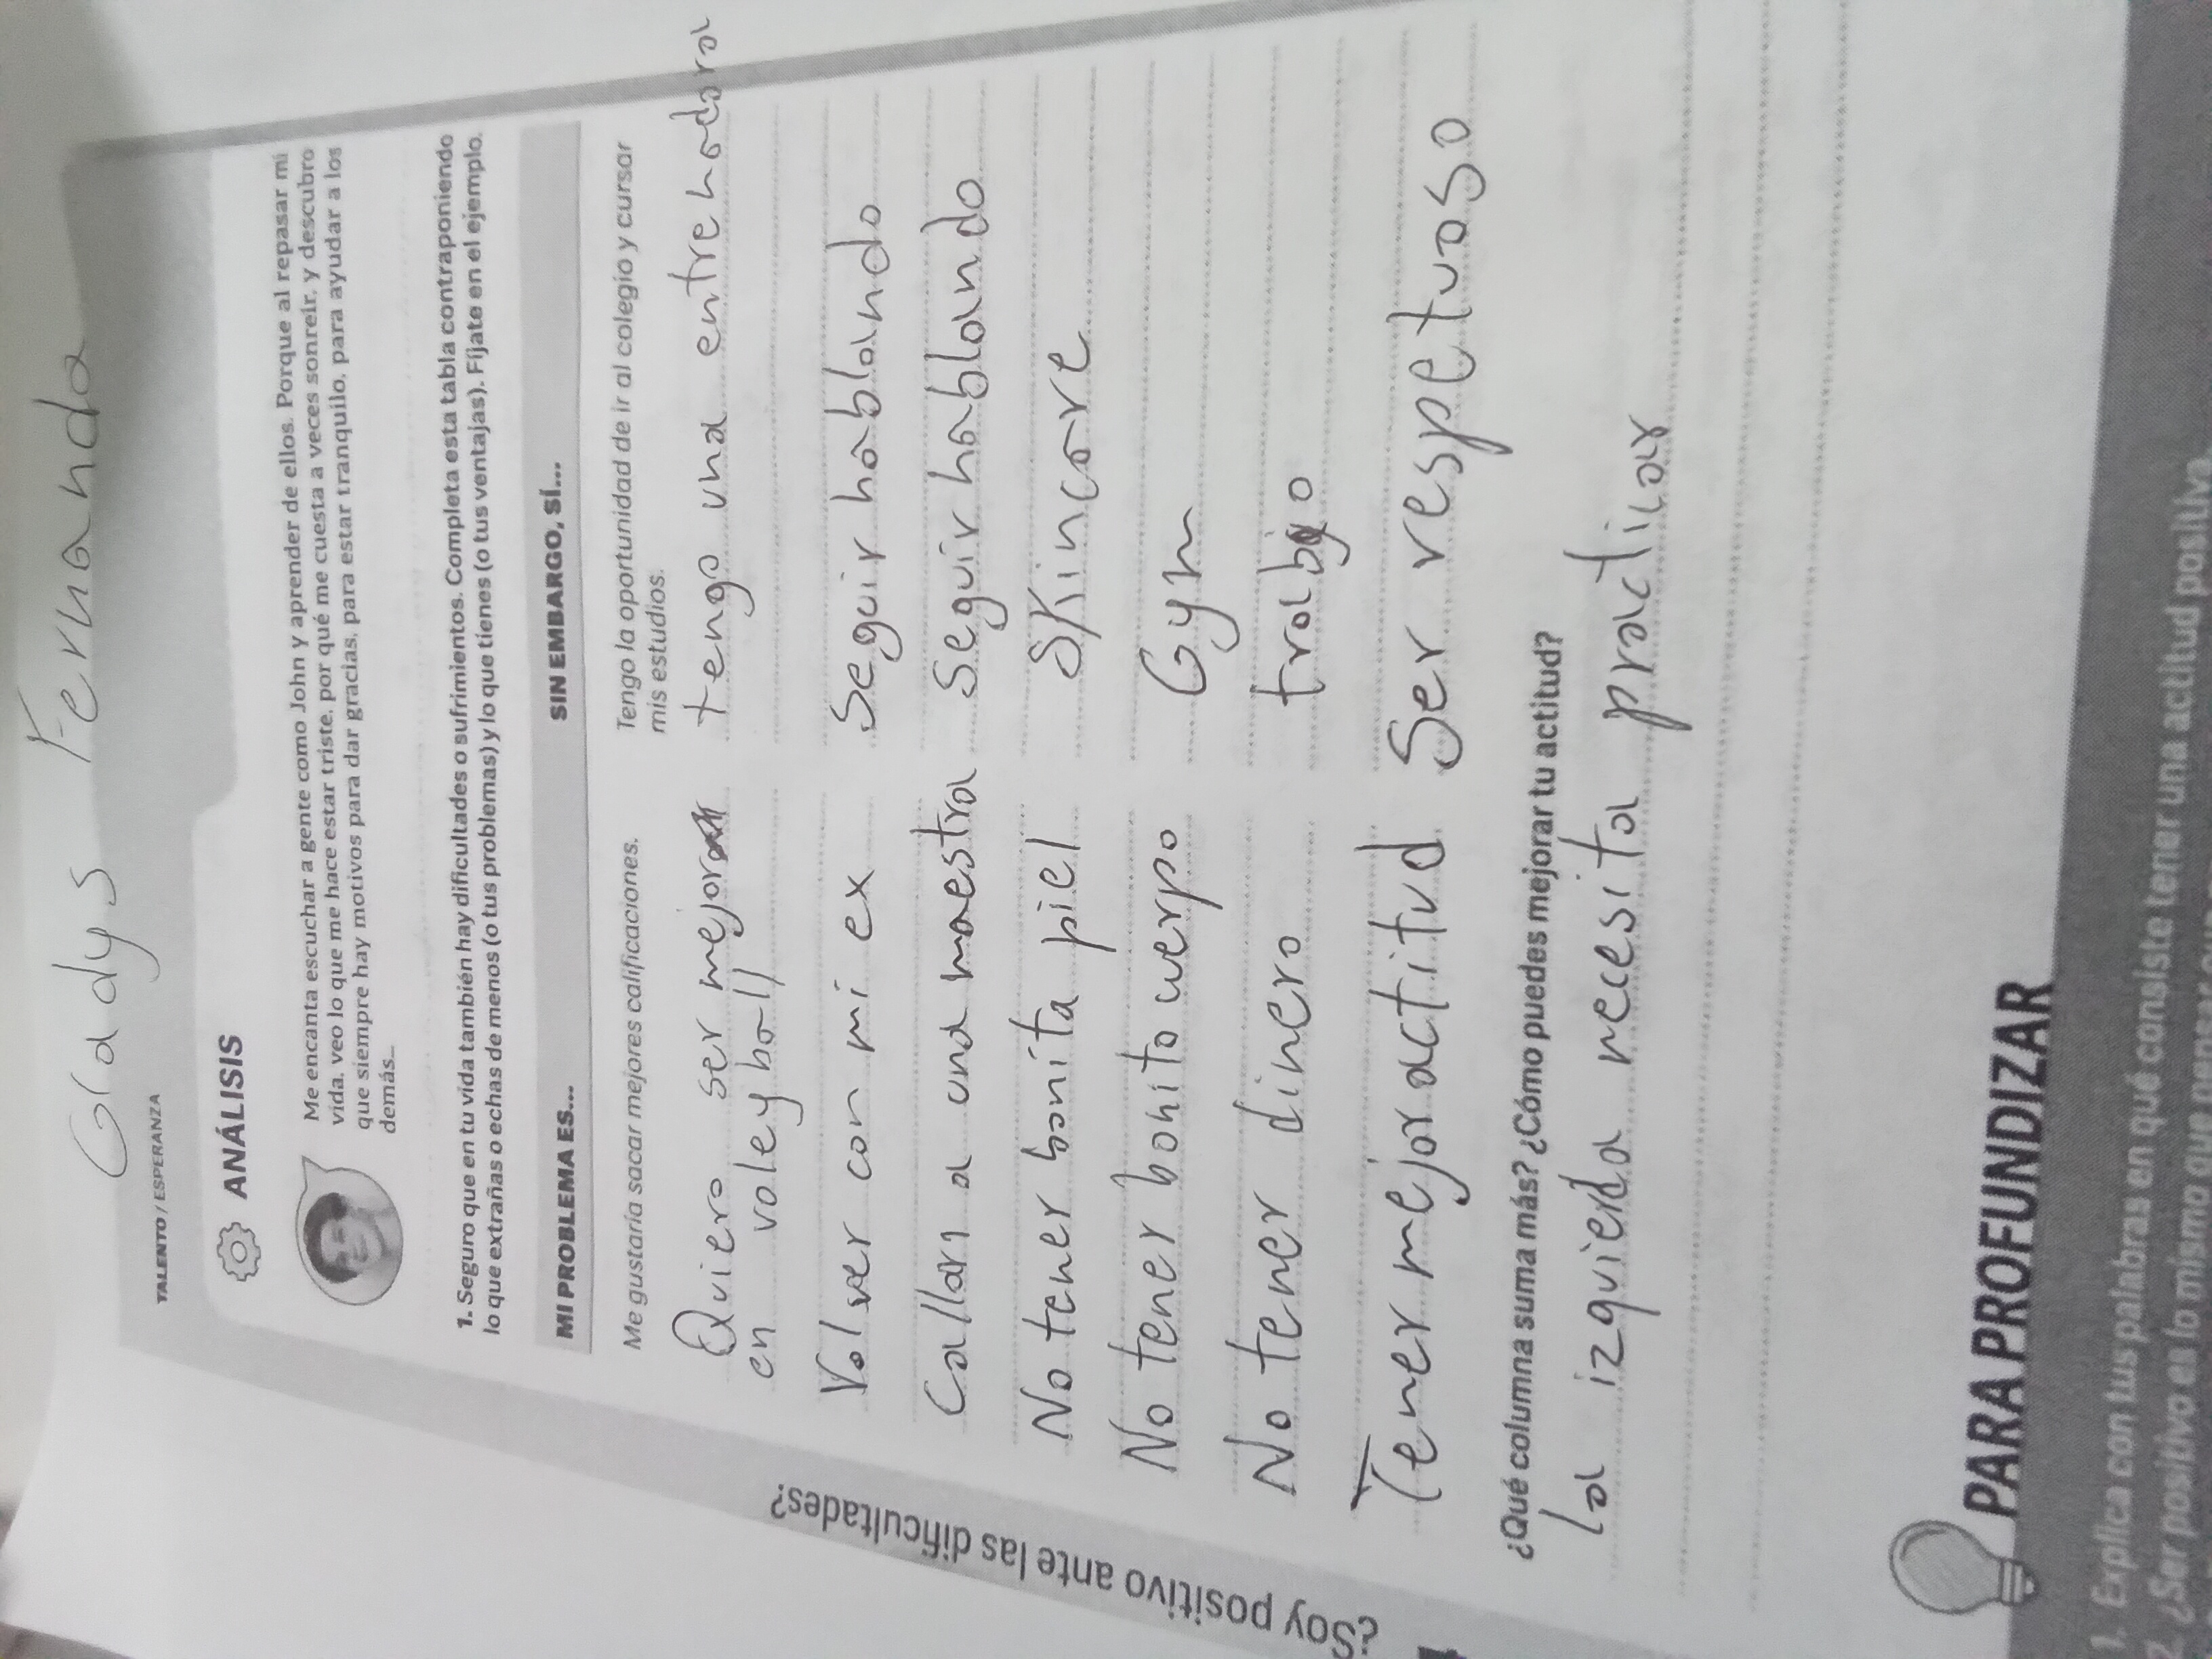 Gladys Fernanda
TALENTO / ESPERANZA
ANÁLISIS
Me encanta escuchar a gente como John y aprender de ellos. Porque al repasar mi
vida, veo lo que me hace estar triste, por qué me cuesta a veces sonreír, y descubro
que siempre hay motivos para dar gracias, para estar tranquilo, para ayudar a los
demás...
1. Seguro que en tu vida también hay dificultades o sufrimientos. Completa esta tabla contraponiendo
lo que extrañas o echas de menos (o tus problemas) y lo que tienes (o tus ventajas). Fíjate en el ejemplo.
MI PROBLEMA ES... SIN EMBARGO, SÍ...
Me gustaría sacar mejores calificaciones. Tengo la oportunidad de ir al colegio y cursar
mis estudios.
Quiero ser mejor tengo una entrehadora
en voleyball
Volver con mi ex Seguir hablando
Callar a una maestra Seguir hablando
No tener bonita piel SKincare
No tener bonito cuerpo Gym
No tener dinero trabjo
Tener mejor actitud Ser respetuoso
¿Qué columna suma más? ¿Cómo puedes mejorar tu actitud?
La izquierda necesita practicar
¿Soy positivo ante las dificultades?
PARA PROFUNDIZAR
1. Explica con tus palabras en qué consiste tener una actitud positiva.
2. ¿Ser positivo es lo mismo que